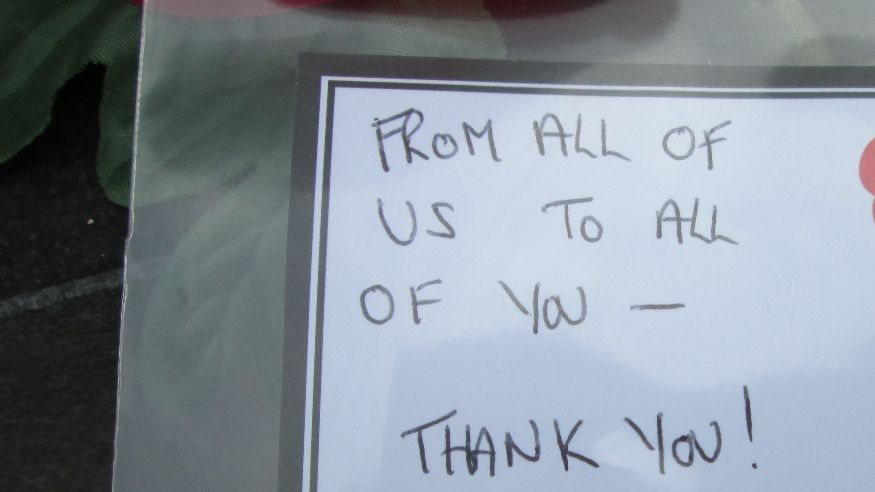 FROM ALL OF
US TO ALL
OF YOU —
THANK YOU!